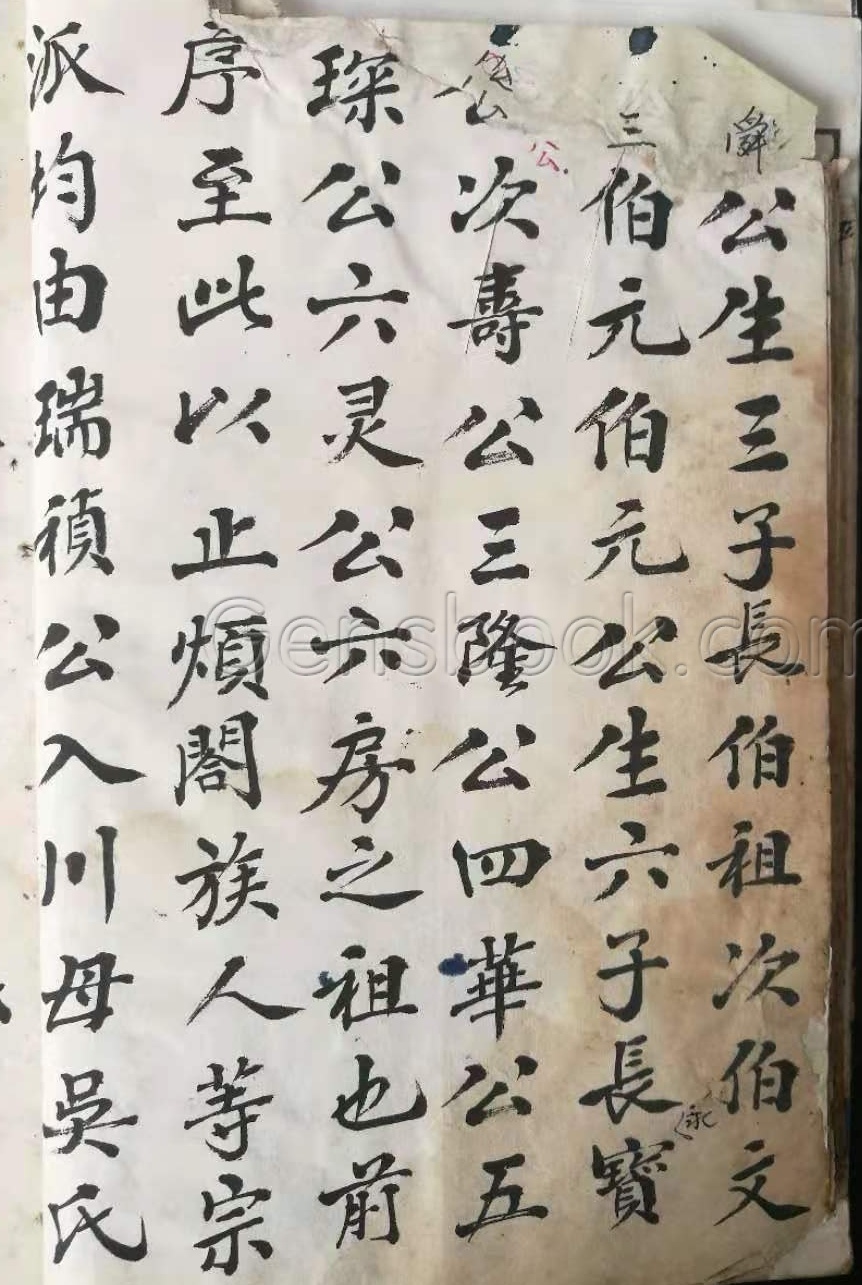 公生三子長伯祖次伯文
三伯元伯元公生六子長寶
公次壽公三隆公四華公五
琛公六灵公六房之祖也前
序至此以止煩閤族人等宗
派均由瑞禎公入川母吳氏
公
永
Gensbook.com